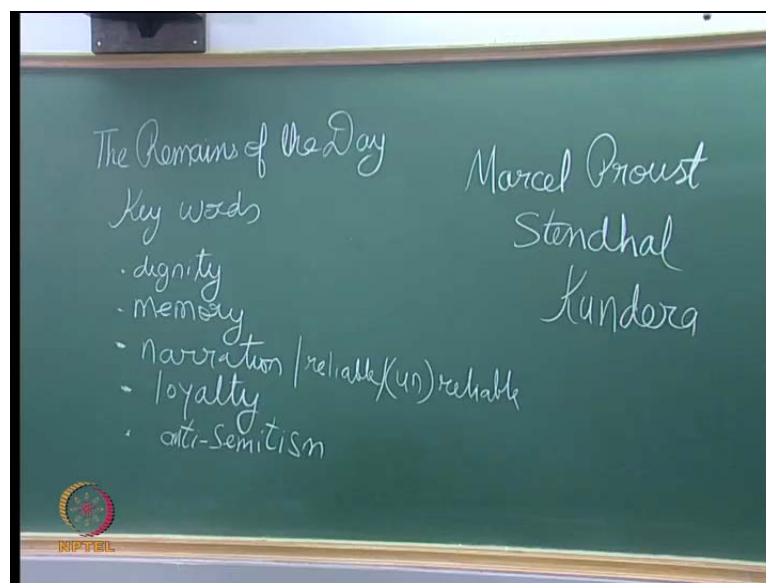 The Remains of the Day
Key words
· dignity
· memory
· narration / reliable/(un)reliable
· loyalty
· anti-semitism
Marcel Proust
Stendhal
Kundera
NPTEL